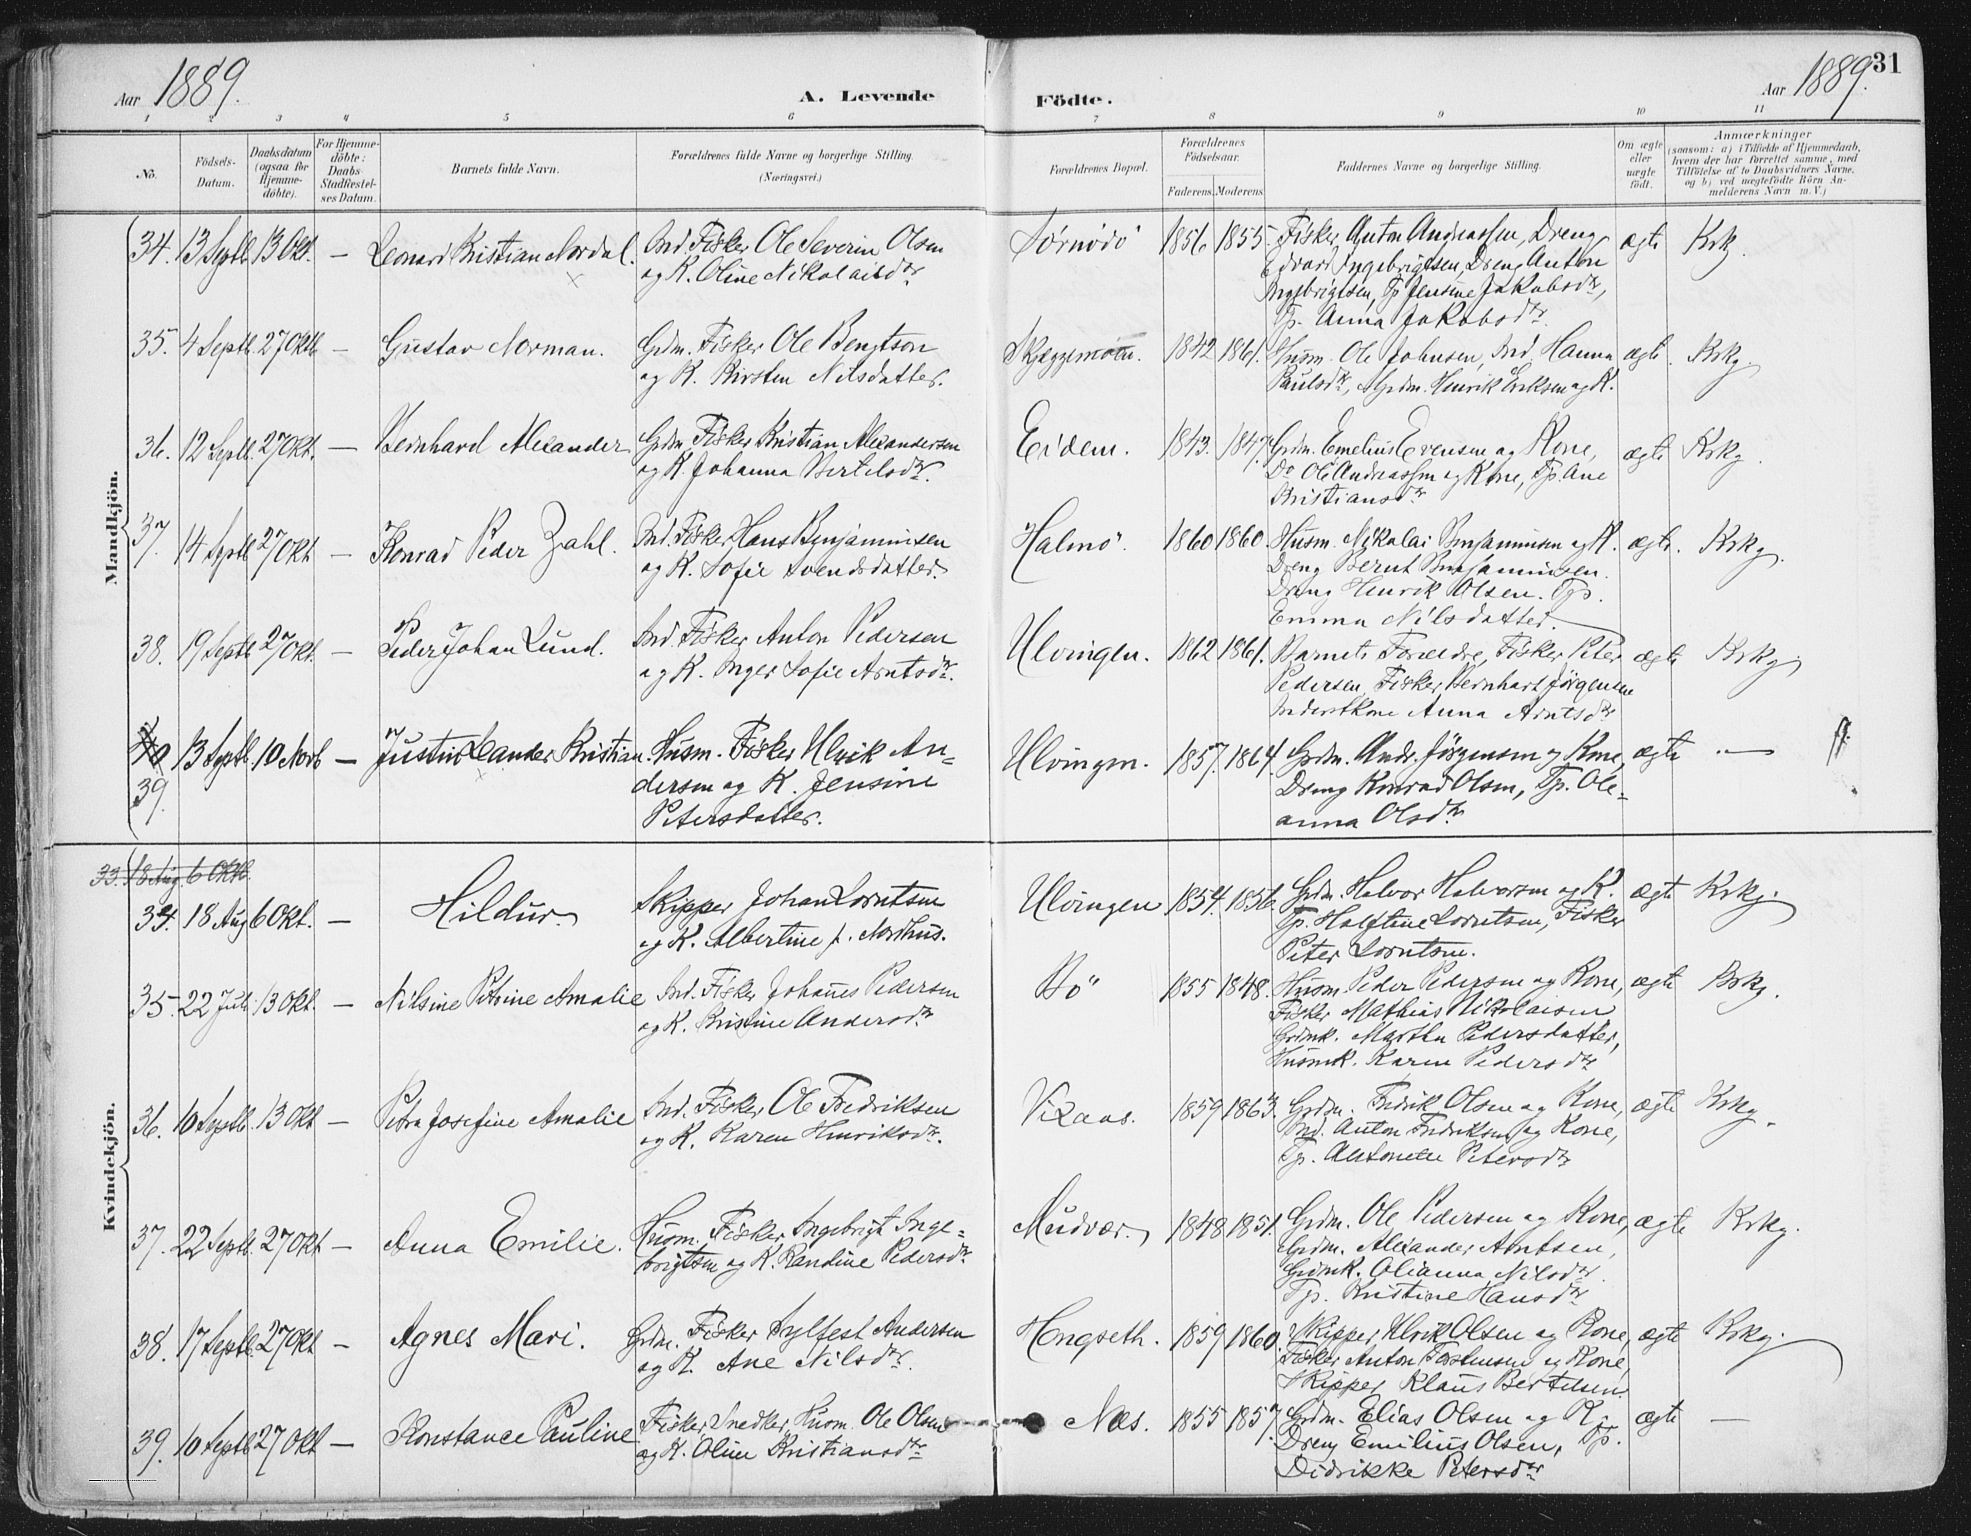 Aar 1889. A. Levende Födte. Aar 1889. 31
1 2 3 4 5 6 7 8 9 10 11
No. Födsels-Datum. Daabsdatum (ogsaa for Hjemmedöbte). For Hjemmedöbte: Daabs-Stadfæstelses Datum. Barnets fulde Navn. Forældrenes fulde Navne og borgerlige Stilling. (Næringsvei.) Forældrenes Bopæl. Forældrenes Födselsaar. Faderens. Moderens. Faddernes Navne og borgerlige Stilling. Om ægte eller uægte födt. Anmærkninger (saasom: a) i Tilfælde af Hjemmedaab, hvem der har forrettet samme, med Tilföielse af to Daabsvidners Navne, og b) ved uægtefödte Börn Anmelderens Navn m. V.)
Mandkjön.
34. 13 Septb. 13 Okt. — Leonard Kristian Nordal. Ind. Fisker Ole Severin Olsen Sörnödö 1856 1855. Fisker Anton Andreassen, Dreng ægte Krk.
og K. Oline Nikolaisdtr Edvard Ingebrigtsen, Dreng Anton
Ingebrigtsen, Tp Jensine Jakobsdtr,
Tp. Anna Jakobsdtr.
35. 4 Septb. 27 Oktb. — Gustav Norman. Grdm. Fisker Ole Bengtson Skjeggemoen. 1842 1861. Husm. Ole Johnsen, Ind. Hanna ægte. Krkg.
og K. Kirsten Nilsdatter. Paulsdtr, Grdm. Henrik Eriksen og K.
36. 12 Septb. 27 Okt. — Bernhard Alexander Grdm Fisker Kristian Alexandersen Eidem. 1843. 1847. Grdm. Emelius Evensen og Kone, ægte Krkg.
og K. Johanna Bertelsdtr. Do Ole Andreassen og Kone, Tp. Ane
Kristiansdtr
37. 14 Septb 27 Okt — Konrad Peder Zahl. Ind. Fisker Hans Benjaminsen Halmö. 1860 1860 Husm. Nikolai Benjaminsen og K. ægte. Krkg.
og K. Sofie Svendsdatter. Dreng Bernt Benjaminsen.
Dreng Henrik Olsen. Tp.
Emma Nilsdatter.
38. 19 Septb 27 Okt. — Peder Johan Lund. Ind. Fisker Anton Pedersen Ulvingen. 1862 1861. Barnets Forældre, Fisker Peter ægte Krkg.
og K. Inger Sofie Arntsdtr. Pedersen, Fisker Bernhart Jörgensen
Inderstkone Anna Arntsdtr
40 13 Septb. 10 Novb — Justin Leander Kristian. Husm. Fisker Ulrik An- Ulvingen. 1857. 1864. Grdm. Andr. Jörgensen og Kone, ægte —
39. dersen og K. Jensine Dreng Konrad Olsen, Tp. Ole-
Petersdatter. anna Olsdtr
Kvindekjön.
33. 18 Aug. 6 Oktb.
34 18 Aug 6 Okt. — Hildur. Skipper Johan Lorntsen Ulvingen 1854. 1856. Grdm. Halvor Halvorsen og K. ægte Krkg.
og K. Albertine f. Northus. Tp. Halftine Lorntsen, Fisker
Peter Lorntsen.
35. 22 Juli. 13 Okt. — Nilsine Petrine Amalie Ind. Fisker Johanes Pedersen Bö 1855 1848. Husm Peder Pedersen og Kone, ægte Krkg.
og K. Kristine Andersdtr Fisker Mathias Nikolaisen
Grdmk. Martha Pedersdatter,
Husmk. Karen Pedersdtr
36. 10 Septb. 13 Okt — Petra Josefine Amalie Ind. Fisker Ole Fredriksen Vizaas. 1859 1863. Grdm. Fredrik Olsen og Kone, ægte Krkg.
og K. Karen Henriksdtr. Ind. Anton Fredriksen og Kone,
Tp. Antonette Petersdtr
37. 22 Septb. 27 Okt — Anna Emilie. Husm. Fisker Ingebrigt Inge- Mudvær. 1848 1851. Grdm. Ole Pedersen og Kone, ægte Krkg.
brigtsen og K. Randine Pedersdtr Grdm. Alexander Arntsen,
Grdmk. Olianna Nilsdtr.
Tp. Kristine Hansdtr
38. 17 Septb. 27 Okt — Agnes Mari. Grdm. Fisker Sylfest Andersen Hongseth. 1859 1860. Skipper Ulrik Olsen og Kone, ægte Krkg.
og K. Ane Nilsdtr. Fisker Anton Torstensen og Kone,
Skipper Klaus Bertelsen
39. 10 Septb 27 Okt — Konstance Pauline Fisker, Snedker, Husm. Ole Olsen Næs. 1855 1857. Grdm. Elias Olsen og K. ægte —
og K. Oline Kristiansdtr Dreng Emilius Olsen, Tp.
Didrikke Petersdtr